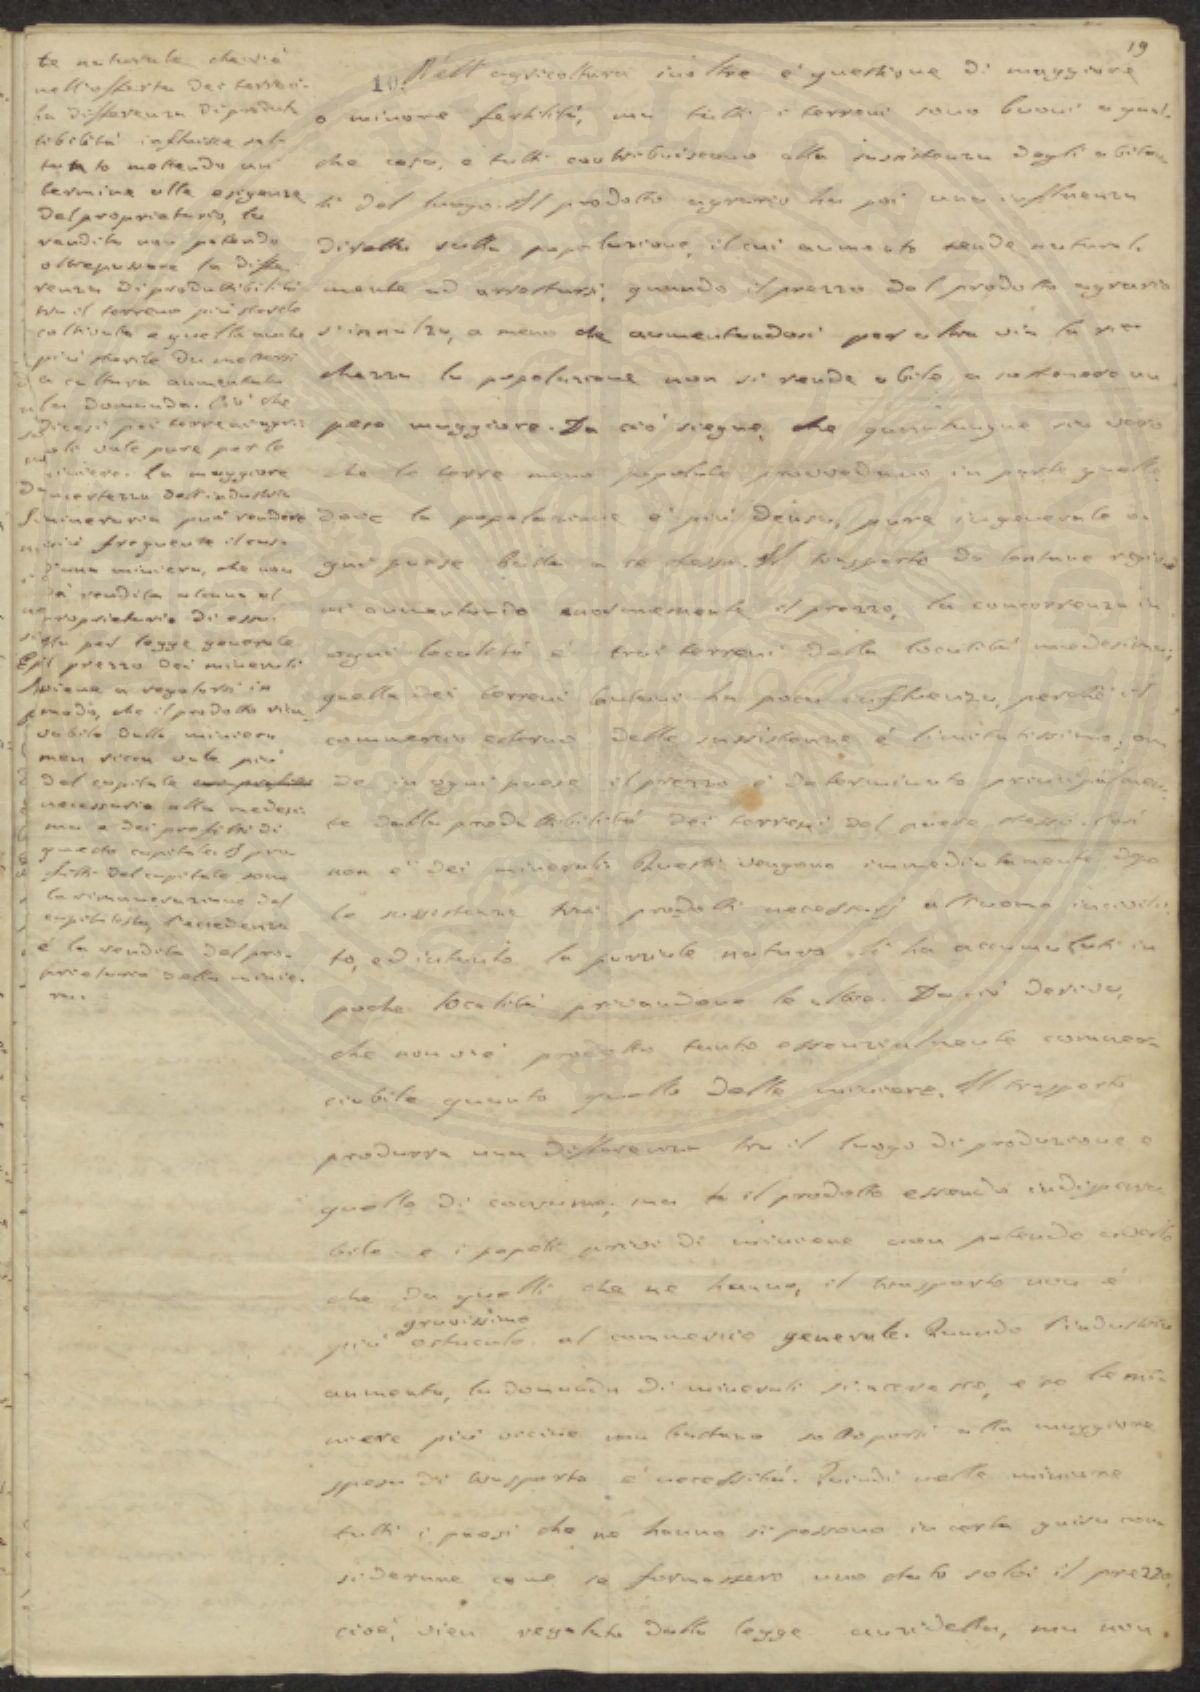 19
te naturale che vi è
nell'offerta dei terreni.
la differenza di produt
tibilità influisce sol-
tanto mettendo un
termine alle esigenze
del proprietario, la
rendita non potendo
oltrepassare la diffe
renza di produttibilità
tra il terreno più sterile
coltivato e quello anche
più sterile da mettersi
a cultura aumentata
la domanda. Ciò che
dicesi pei terreni agri
coli vale pure per le
miniere. La maggiore
incertezza dell'industria
mineraria può rendere
più frequente il caso
d'una miniera, che non
dà rendita alcuna al
proprietario di essa.
Ma per legge generale
il prezzo dei minerali
viene a regolarsi in
modo, che il prodotto rica
vabile dalla miniera
men ricca vale più
del capitale
necessario alla medesi
ma e dei profitti di
questo capitale. I pro
fitti del capitale sono
la rimunerazione del
capitalista, l'eccedenza
è la rendita del pro-
prietario della minie.
ra.
10. Nell'agricoltura inoltre è questione di maggiore
o minore fertilità, ma tutti i terreni sono buoni a qual.
che cosa, e tutti contribuiscono alla sussistenza degli abitan
ti del luogo. Il prodotto agrario ha poi una influenza
diretta sulla popolazione, il cui aumento tende natural.
mente ad arrestarsi, quando il prezzo del prodotto agrario
s'innalza, a meno che aumentandosi per altra via la ric
chezza la popolazione non si rende abile a sostenere un
peso maggiore. Da ciò siegue, che quantunque sia vero
che le terre meno popolate provvedano in parte quelle
dove la popolazione è più densa, pure in generale o.
gni paese basta a se stesso. Il trasporto da lontane regio
ni aumentando enormemente il prezzo, la concorrenza in
ogni località è trai terreni della località medesima;
quella dei terreni lontani ha poca influenza, perchè il
commercio esterno delle sussistenze è limitatissimo; on
de in ogni paese il prezzo è determinato principalmen.
te dalla produttibilità dei terreni del paese stesso. Così
non è dei minerali. Questi vengono immediatamente dopo
le sussistenze trai prodotti necessarj all'uomo incivili.
to, ed intanto la parziale natura li ha accumulati in
poche località privandone le altre. Da ciò deriva,
che non vi è prodotto tanto essenzialmente commer
ciabile quanto quello delle miniere. Il trasporto
produrrà una differenza tra il luogo di produzione e
quello di consumo; ma il prodotto essendo indispensa
bile e i popoli privi di miniere non potendo averlo
che da quelli che ne hanno, il trasporto non è
gravissimo
più ostacolo al commercio generale. Quando l'industria
aumenta, la domanda di minerali si accresce, e se le mi
niere più vicine non bastano sottoporsi alla maggiore
spesa di trasporto è necessità. Quindi nelle miniere
tutti i paesi che ne hanno si possono in certa guisa con
siderare come se formassero uno stato solo; il prezzo,
cioè, vien regolato dalla legge anzidetta, ma non